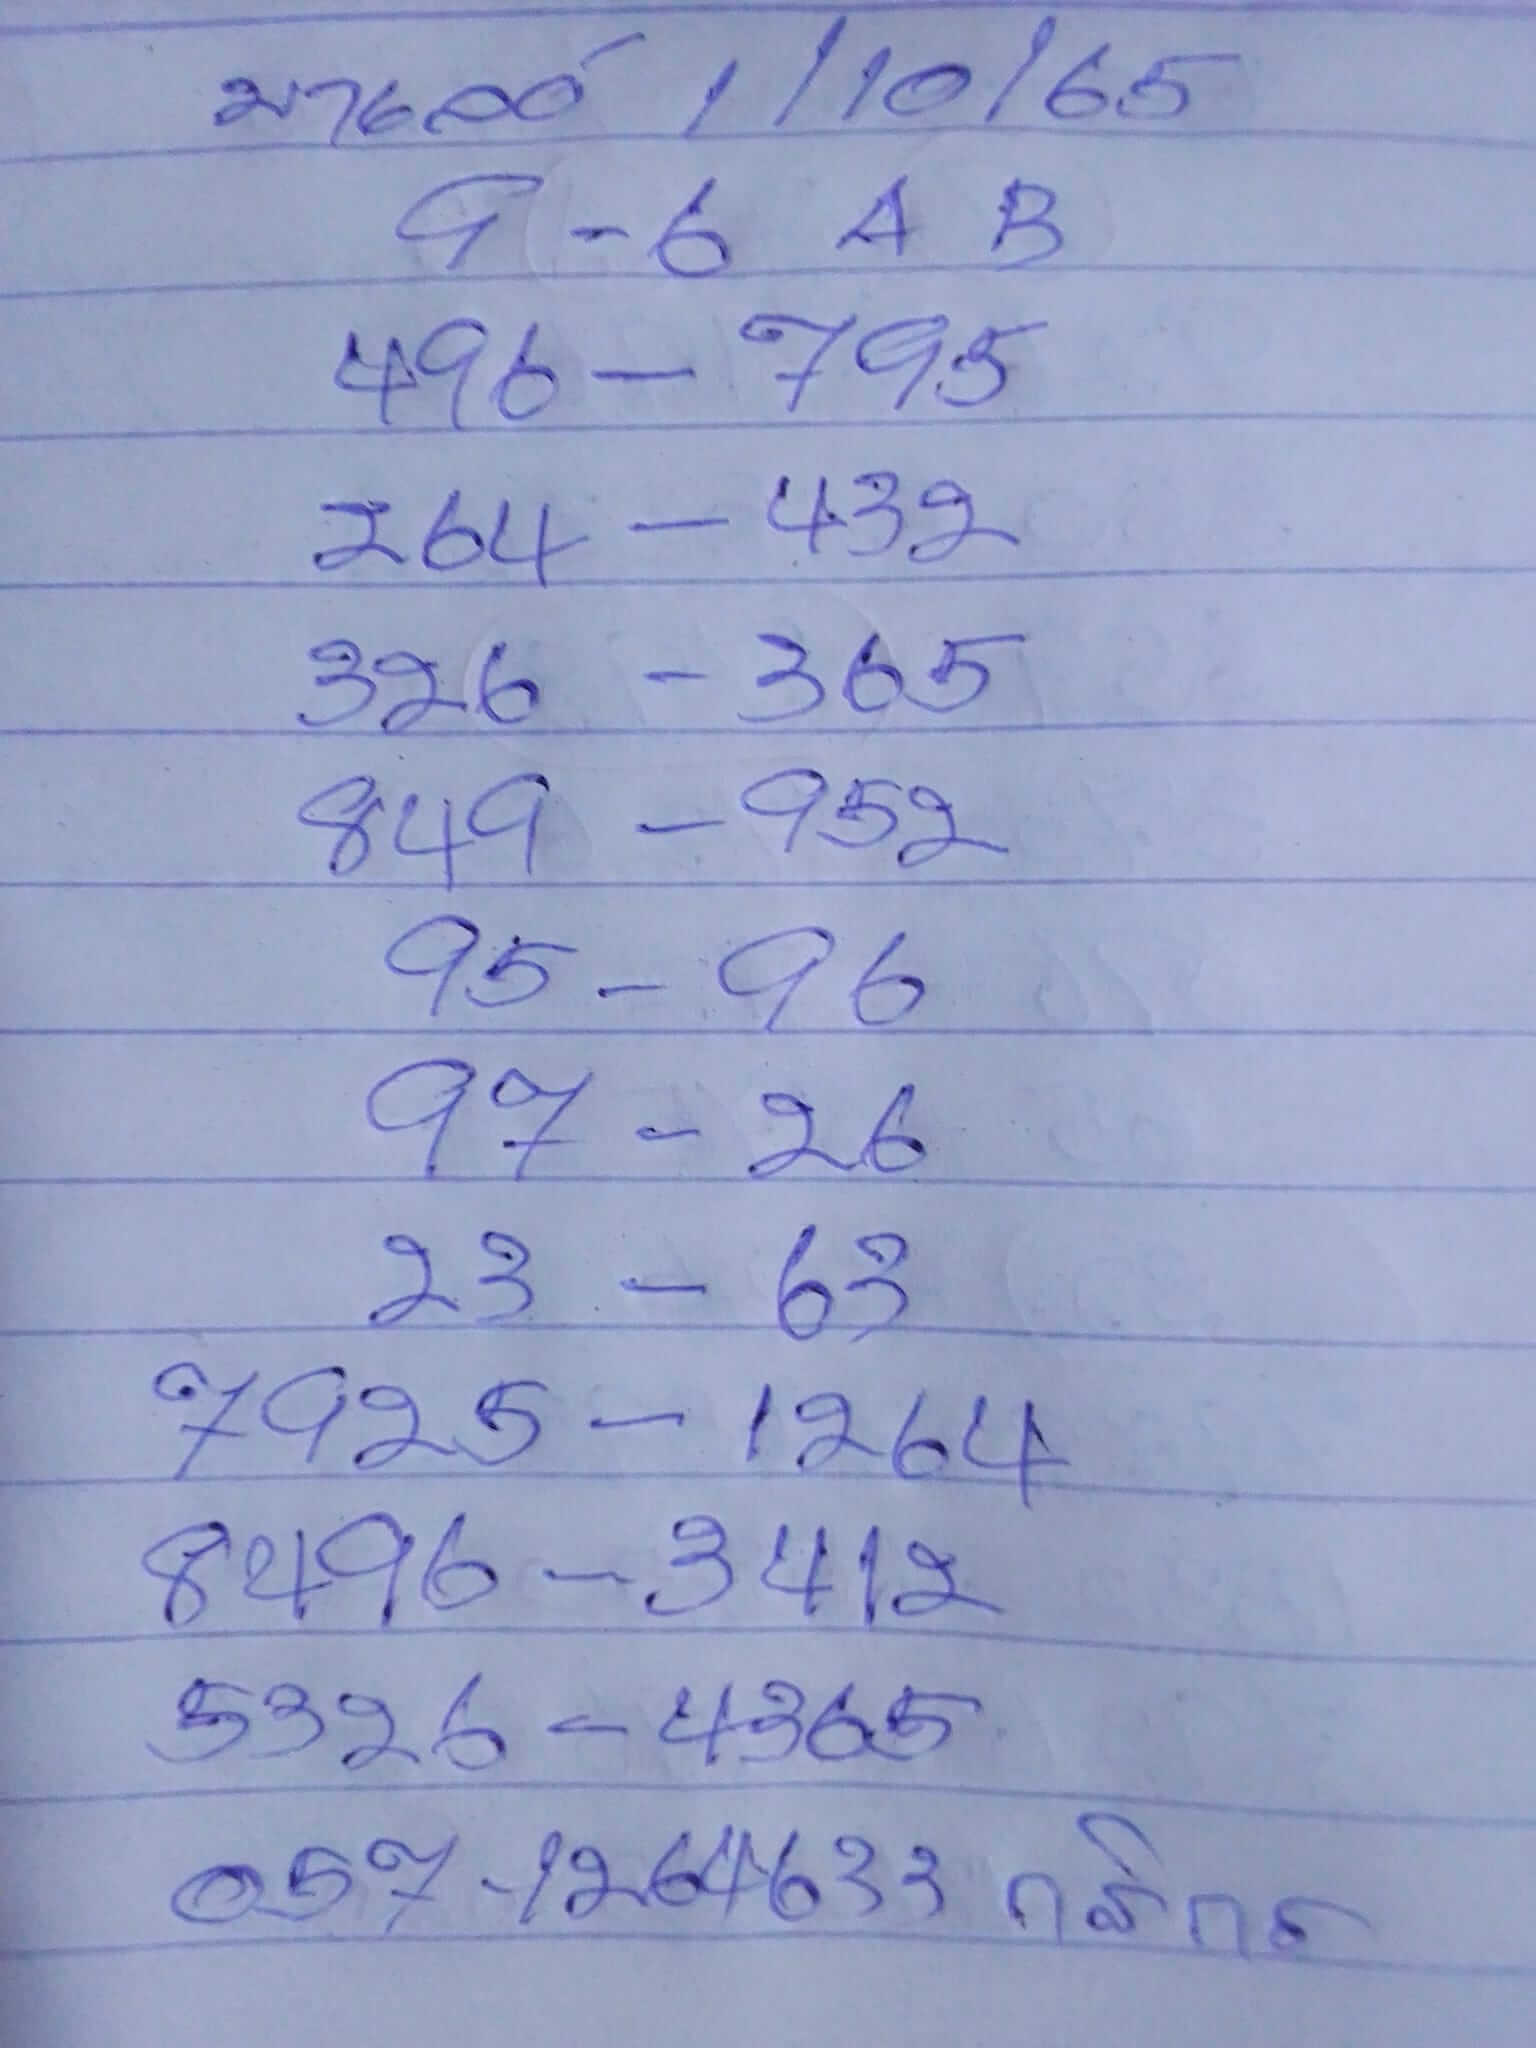 มาเลย์ 1/10/65
9-6 A B
496-795
264-432
326-365
849-952
95-96
97-26
23-63
7925-1264
8496-3412
5326-4365
057-1264633 กสิกร